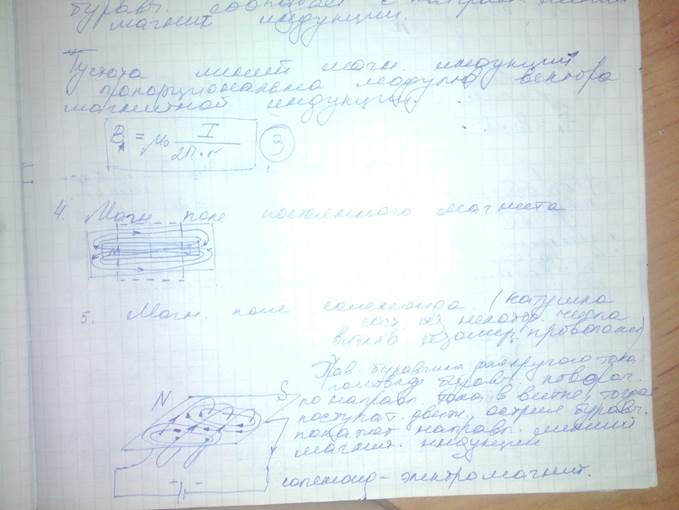 буравч. совпадает с направ. линий
магнит индукции.
Густота линий магн. индукции
пропорциональна модулю вектора
магнитной индукции.
B = μ₀ I / 2π·r (3)
4. Магн. поле постоянного магнита
5. Магн. поле соленоида (катушка
сост. из некотор. числа
витков проволоки)
Прав. буравчика для кругового тока
головка буравч. поворач.
по направл. тока в витке, тогда
поступат. движ. острия буравч.
покажет направл. линий
магнит. индукции
N S
+ -
соленоид - электромагнит.